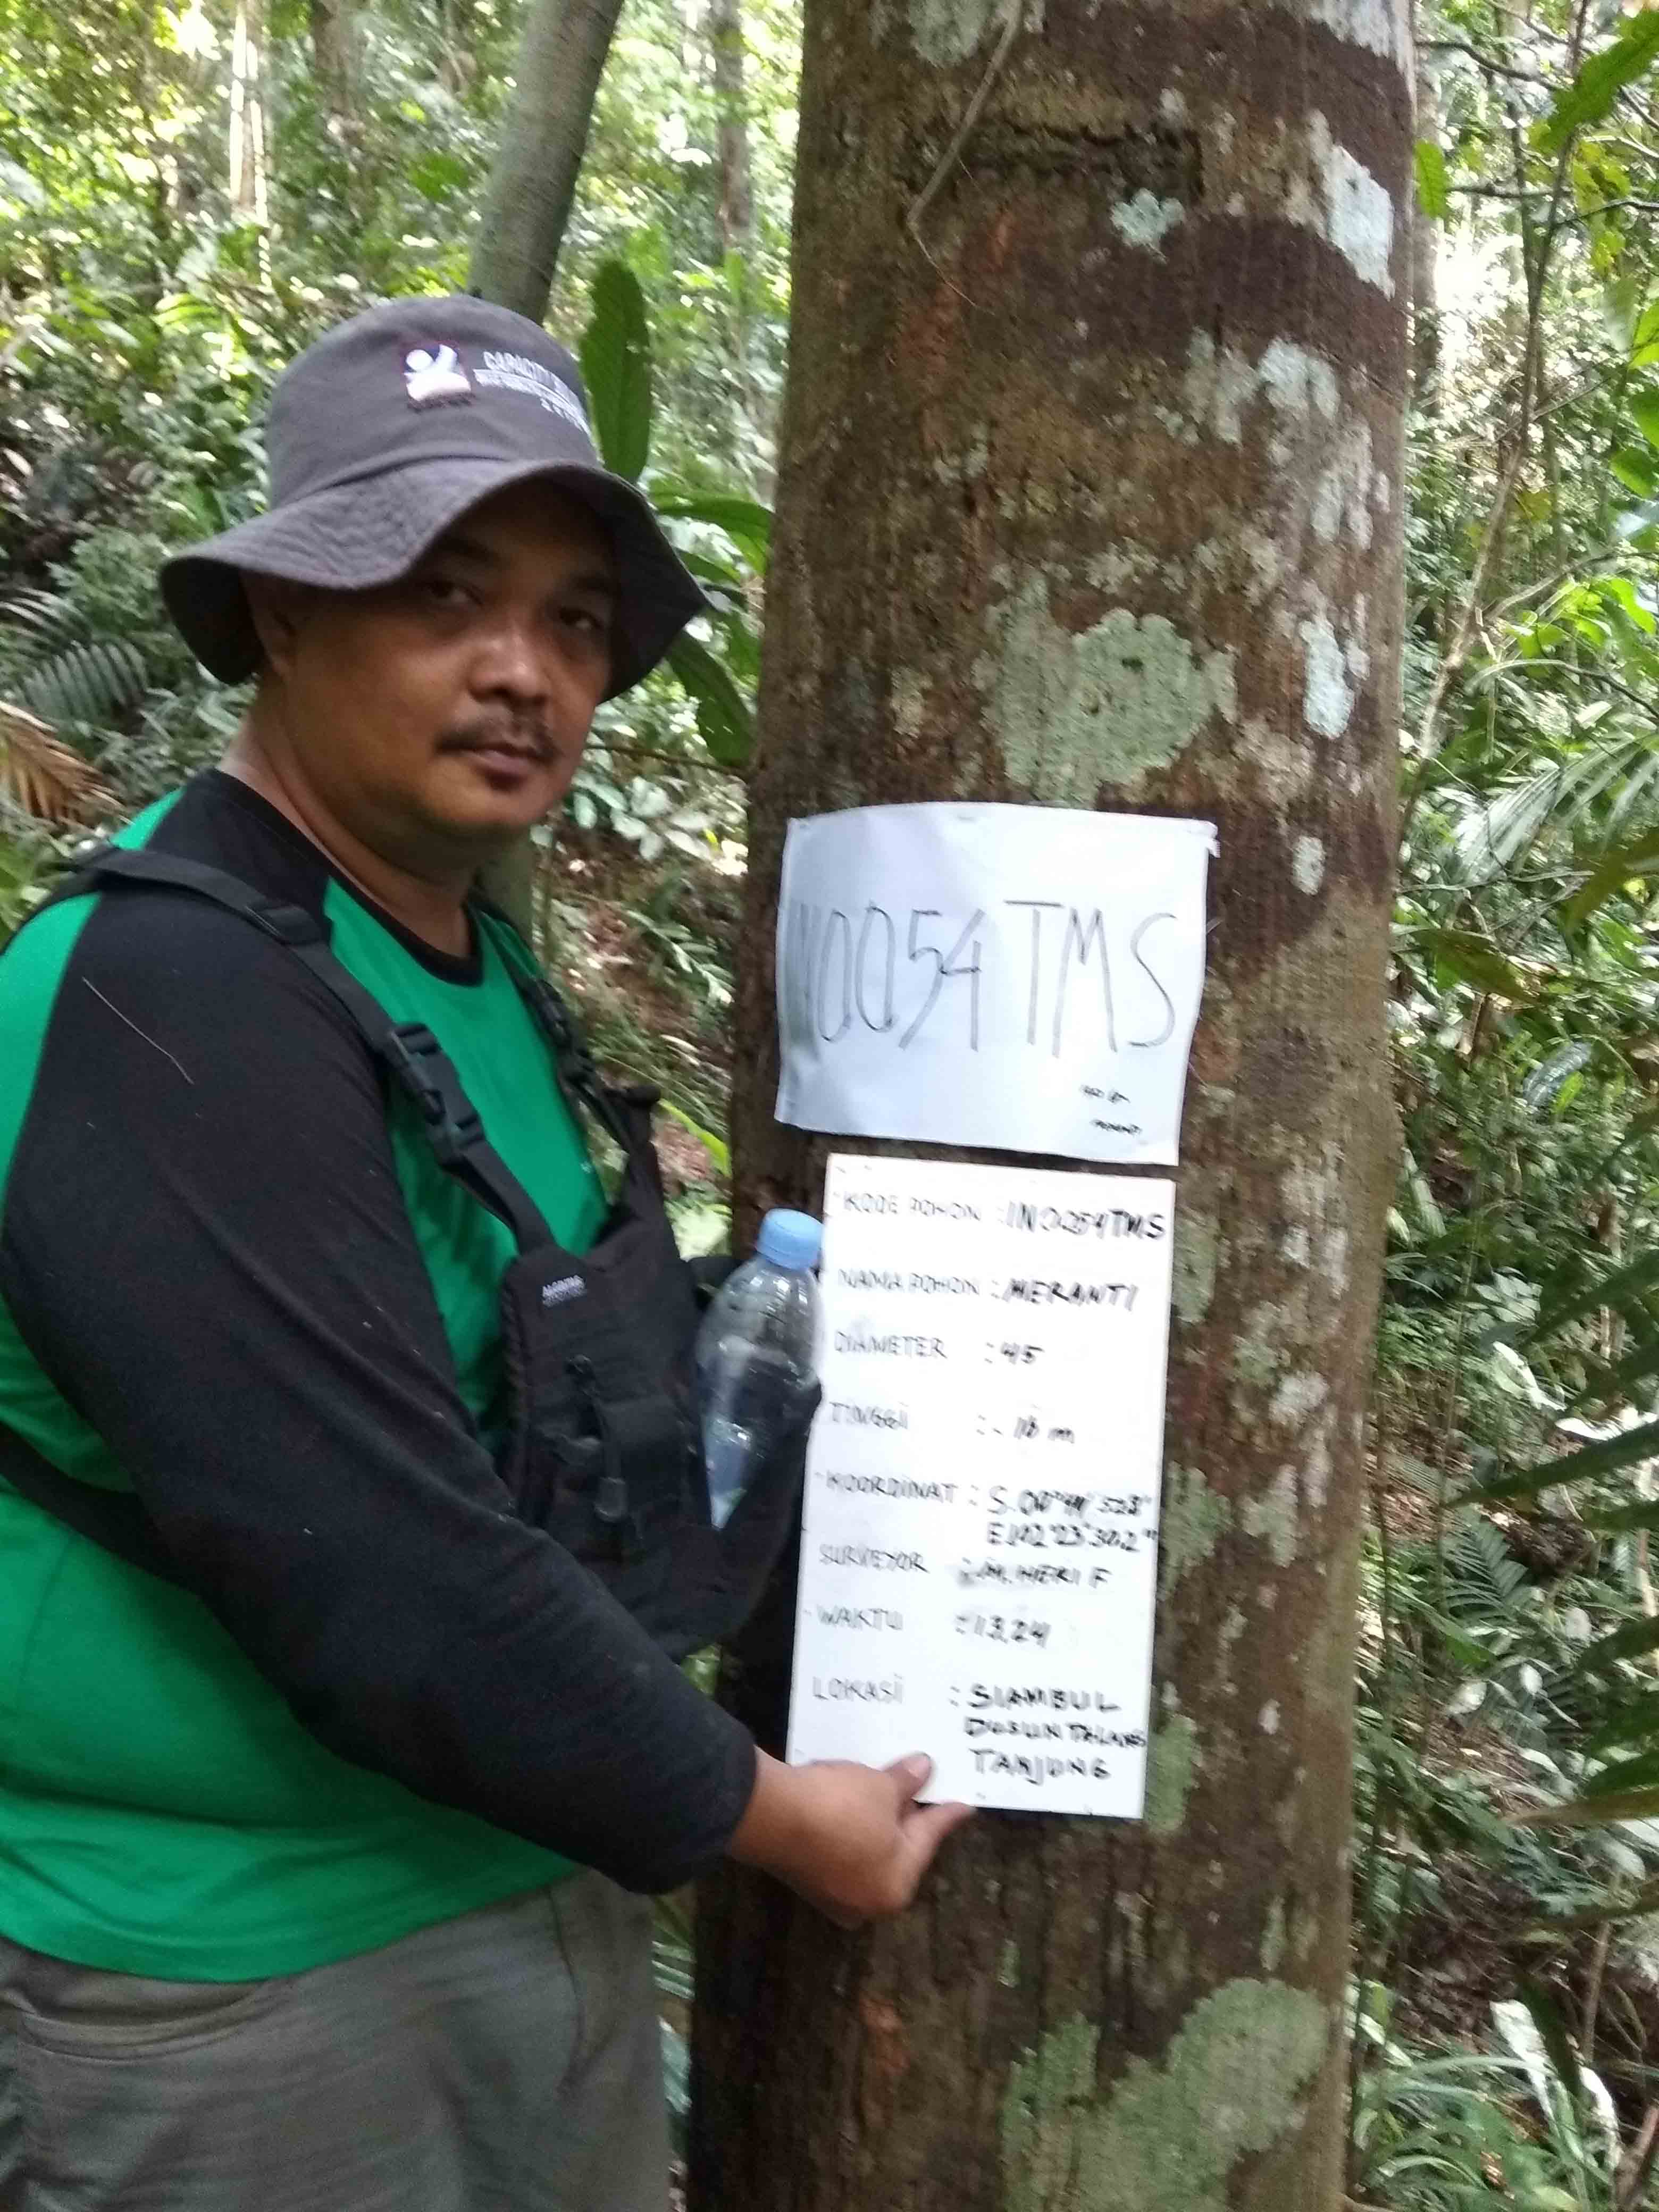 CAPACITY
IN0054TMS
KODE POHON : IN0054TMS
NAMA POHON : MERANTI
DIAMETER : 45
TINGGI : 18 m
KOORDINAT :
SURVEYOR : M. HERI F
WAKTU : 13,24
LOKASI : SIAMBUL
DUSUN TALANG
TANJUNG